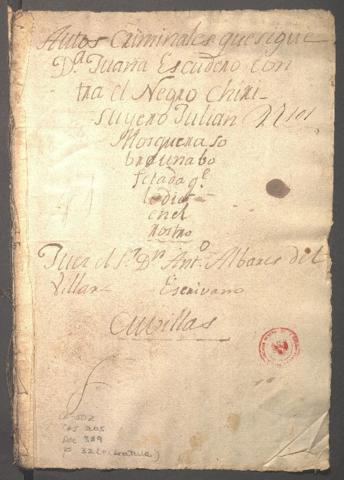 Autos Criminales que sigue
D.ª Juana Escudero con
tra el Negro Chiri
suyero Julian
Mosquera so
bre una bo
fetada q.e
le dio
en el
rostro
Juez el S.r D.n Ant.o Albares del
Villar Escrivano
Cubillas